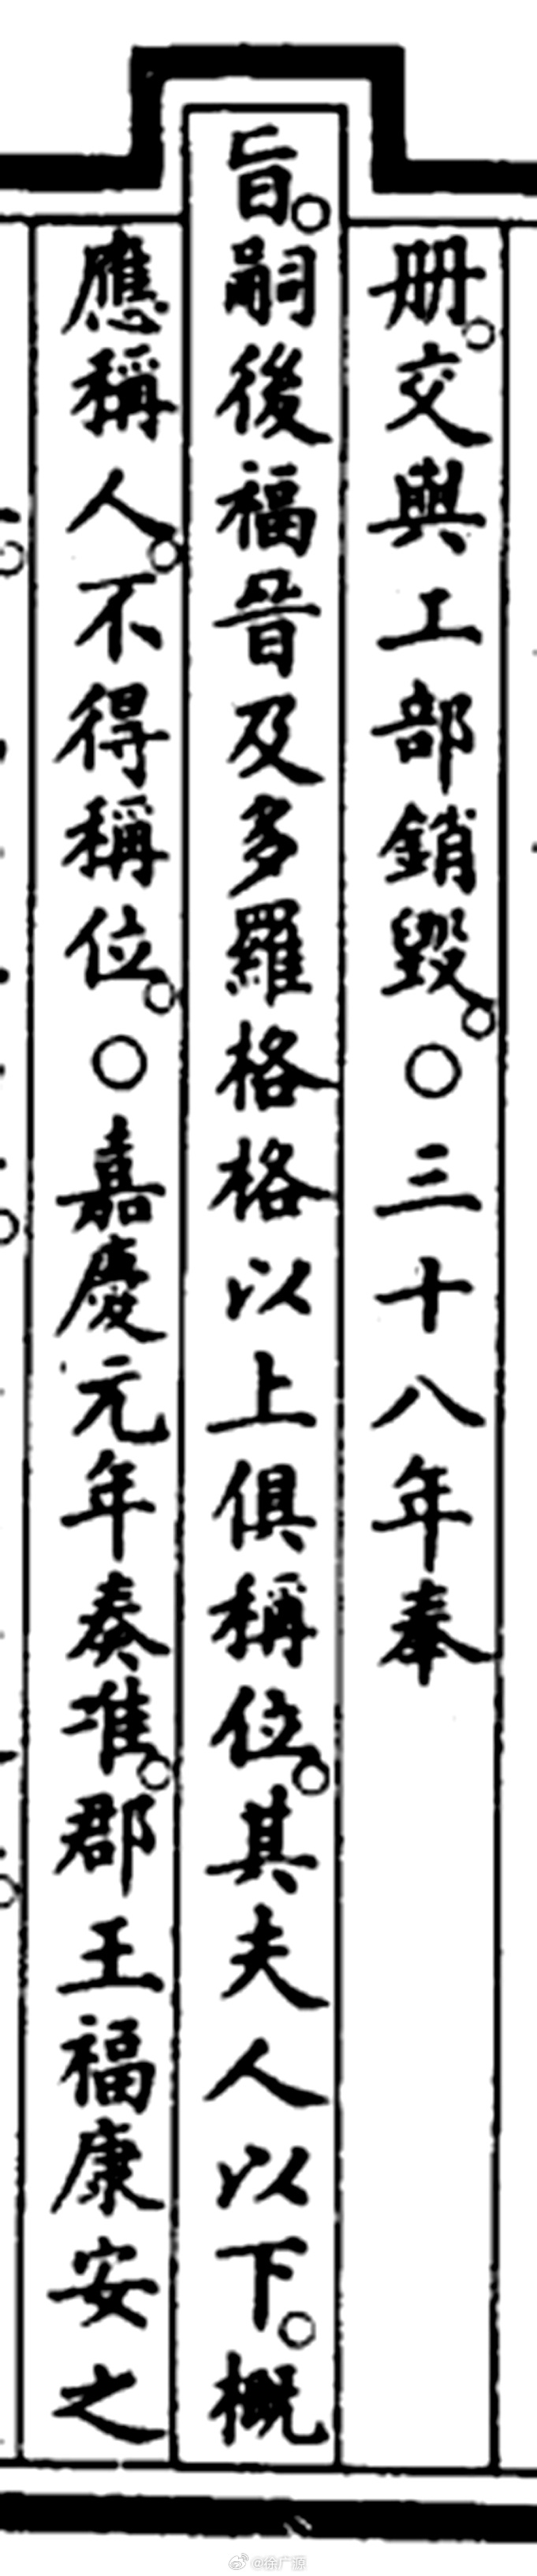 册。交與工部銷毀。○三十八年奉
旨。嗣後福晉及多羅格格以上俱稱位。其夫人以下。概
應稱人。不得稱位。○嘉慶元年奏准。郡王福康安之
@徐广源